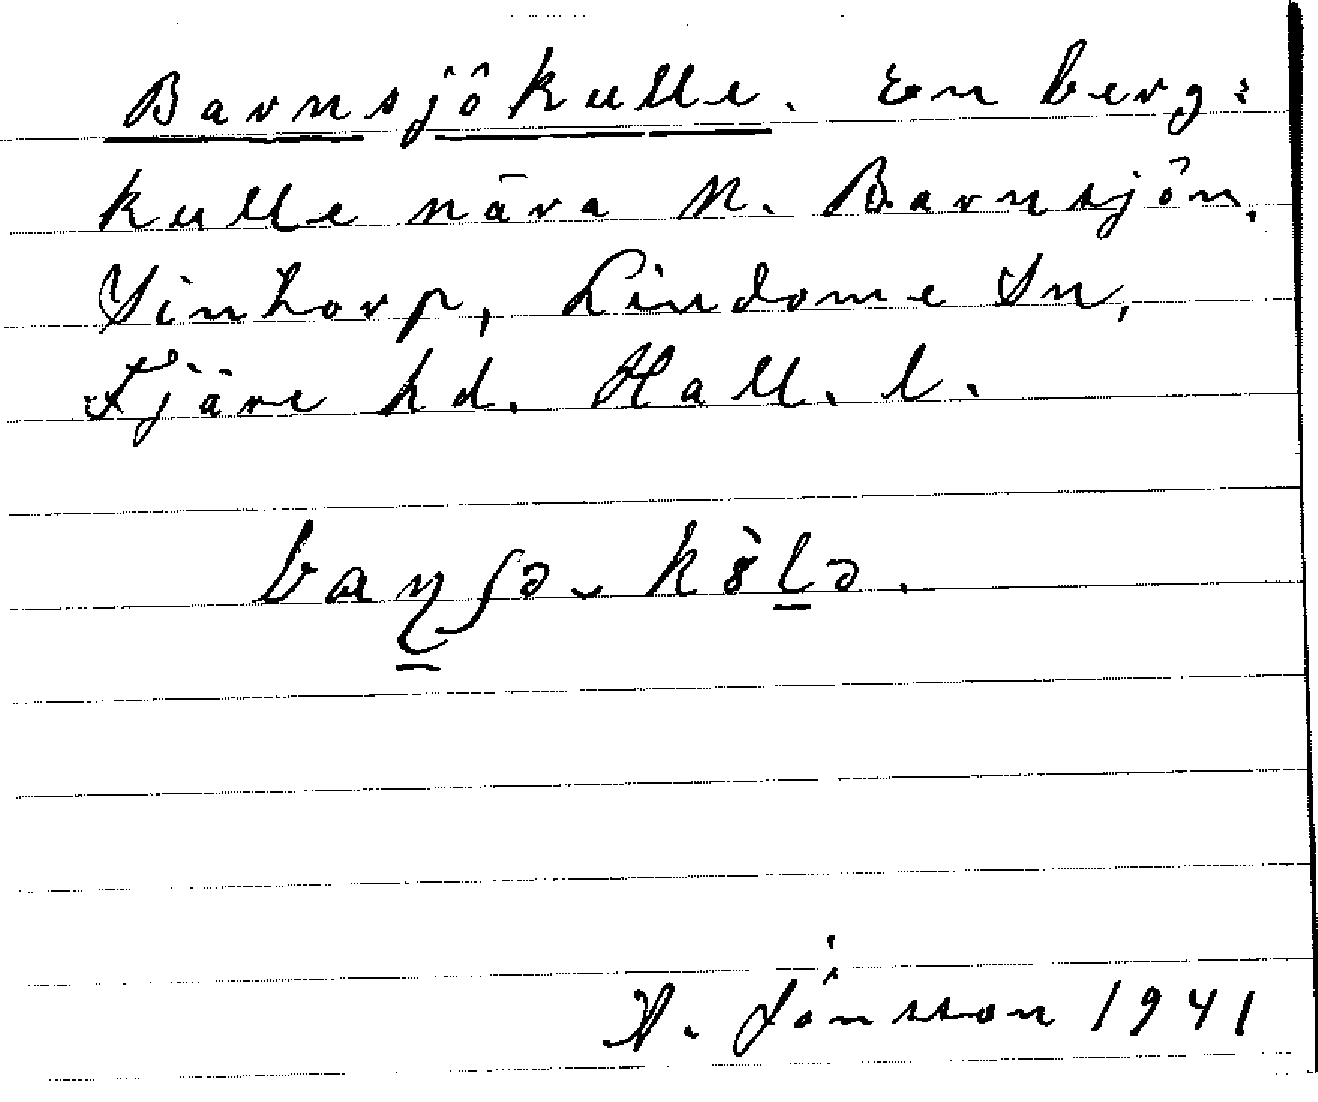 Barnsjökulle. En berg=
kulle nära N. Barnsjön.
Sintorp, Lindome Sn,
Fjäre hd. Hall. l.
Jönsson 1941